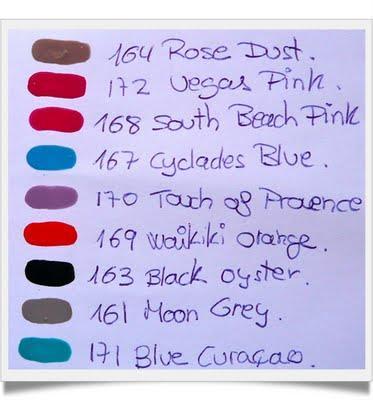 164 Rose Dust.
172 Vegas Pink.
168 South Beach Pink
167 Cyclades Blue.
170 Touch of Provence
169 Waikiki Orange.
163 Black Oyster.
161 Moon Grey.
171 Blue Curaçao.